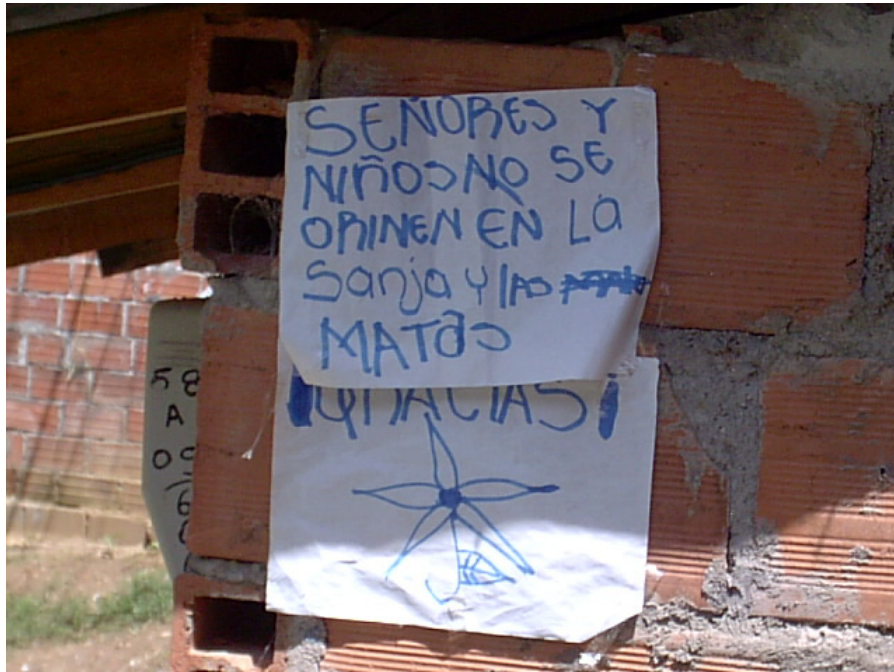 SEÑORES Y
NIÑOS NO SE
ORINEN EN LA
Sanja Y lAS
MATaS
¡GRACIAS!
58
A